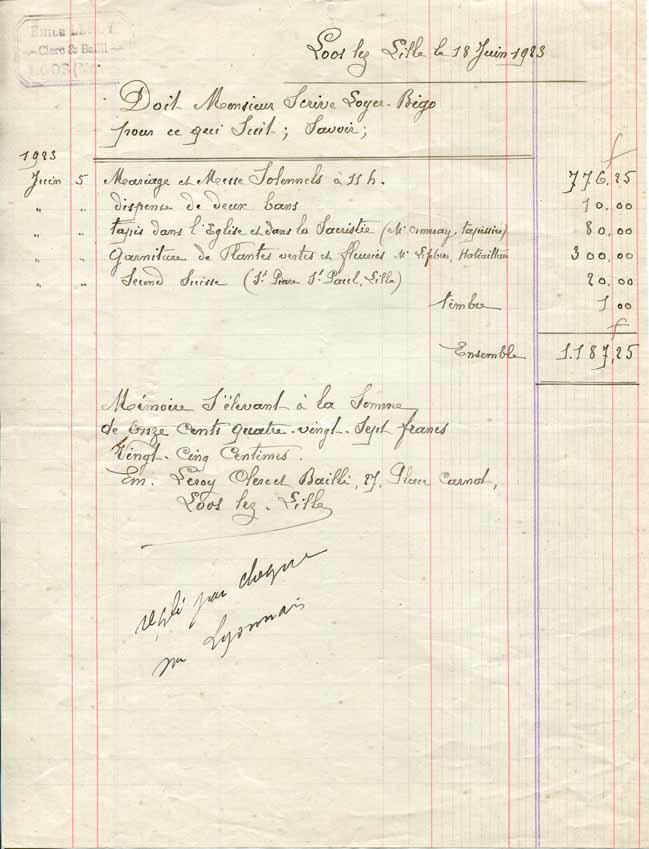 EMILE LEROY
Clerc & Bailli
LOOS
Loos lez Lille le 18 Juin 1923
Doit Monsieur Scrive Loyer-Bigo
pour ce qui Suit ; Savoir ;
1923
f
Juin 5 Mariage et Messe Solennels à 11 h. 776.25
" " dispense de deux bans 10.00
" " tapis dans l'Eglise et dans la Sacristie (Mr , tapissier) 80.00
" " Garniture de Plantes vertes et fleuries Mr Lefebvre, 300.00
" " Second Suisse (St Pierre St Paul, Lille) 20.00
timbre 1 00
f
Ensemble 1.187,25
Mémoire S'élevant à la Somme
de Onze Cents quatre-vingt-Sept francs
Vingt-Cinq Centimes.
Em. Leroy Clerc et Bailli, 27, Place Carnot,
Loos lez-Lille
réglé par chèque
sur Lyonnais